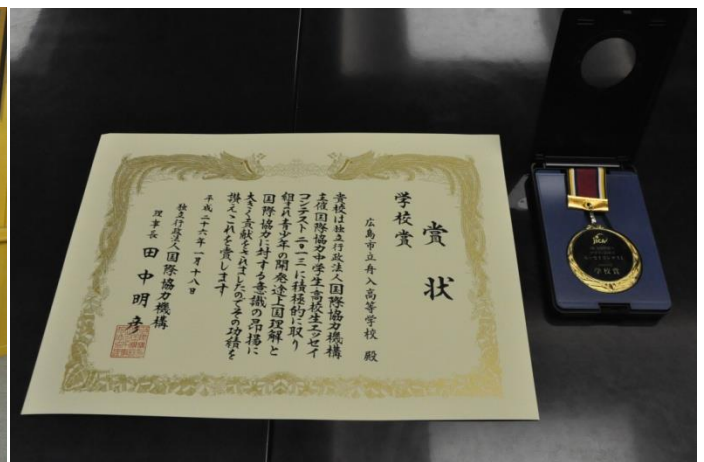 賞状
学校賞
広島市立舟入高等学校 殿
貴校は独立行政法人国際協力機構
主催国際協力中学生・高校生エッセイ
コンテスト二〇一三に積極的に取り
組まれ青少年の開発途上国理解と
国際協力に対する意識の昂揚に
大きく貢献をされましたのでその功績を
讃えこれを賞します
平成二十六年一月十八日
独立行政法人国際協力機構
理事長 田中明彦
jica
学校賞